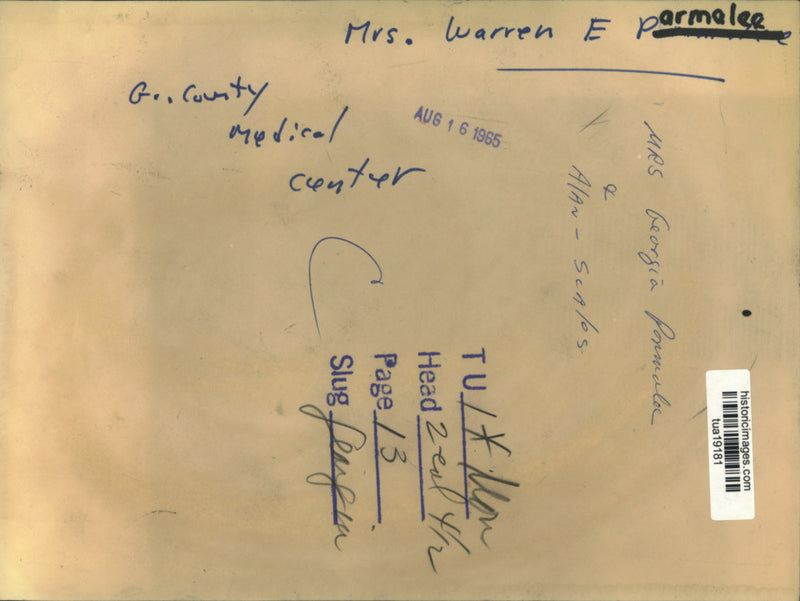 Mrs. Warren E Parmalee
G.. County
Medical
Center
AUG 16 1965
MRS Georgia Parmalee
&
Alan - Scalos
TU 1 X Mon
Head 2-col 4/2
Page 13
Slug Georgia
historicimages.com
tua19181